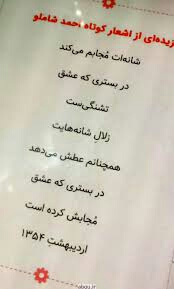 گزیده‌ای از اشعار کوتاه احمد شاملو
شانه‌ات مُجابم می‌کند
در بستری که عشق
تشنگی‌ست
زلالِ شانه‌هایت
همچنانم عطش می‌دهد
در بستری که عشق
مُجابش کرده است
اردیبهشتِ ۱۳۵۴